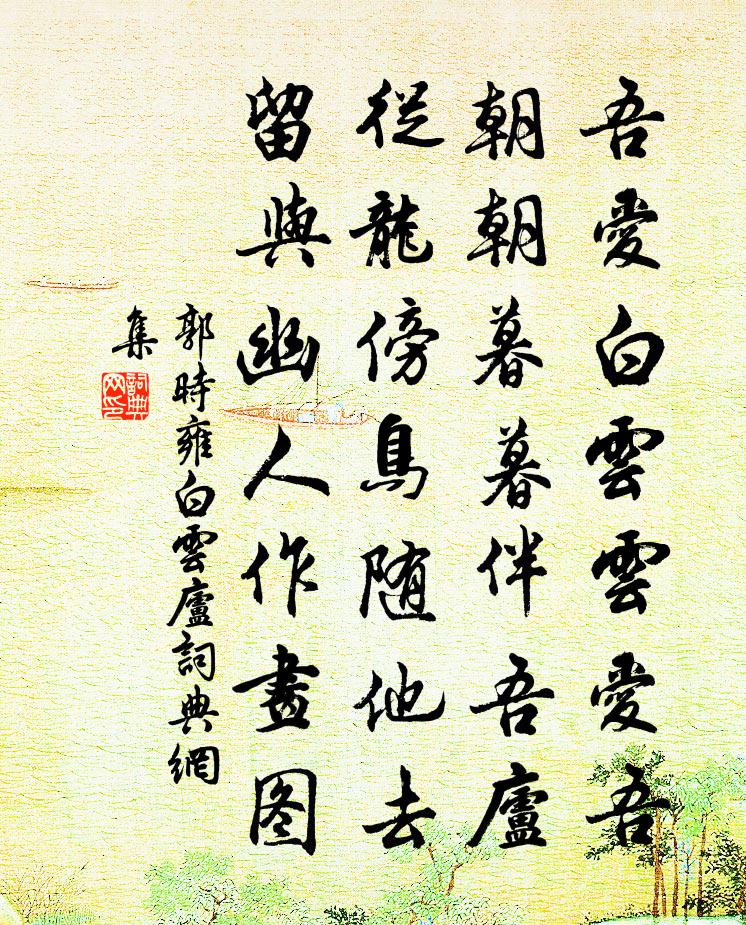 吾愛白雲雲愛吾
朝朝暮暮伴吾廬
從龍傍鳥随他去
留與幽人作畫图
郭時雍白雲廬詞典網
集
詞典网印